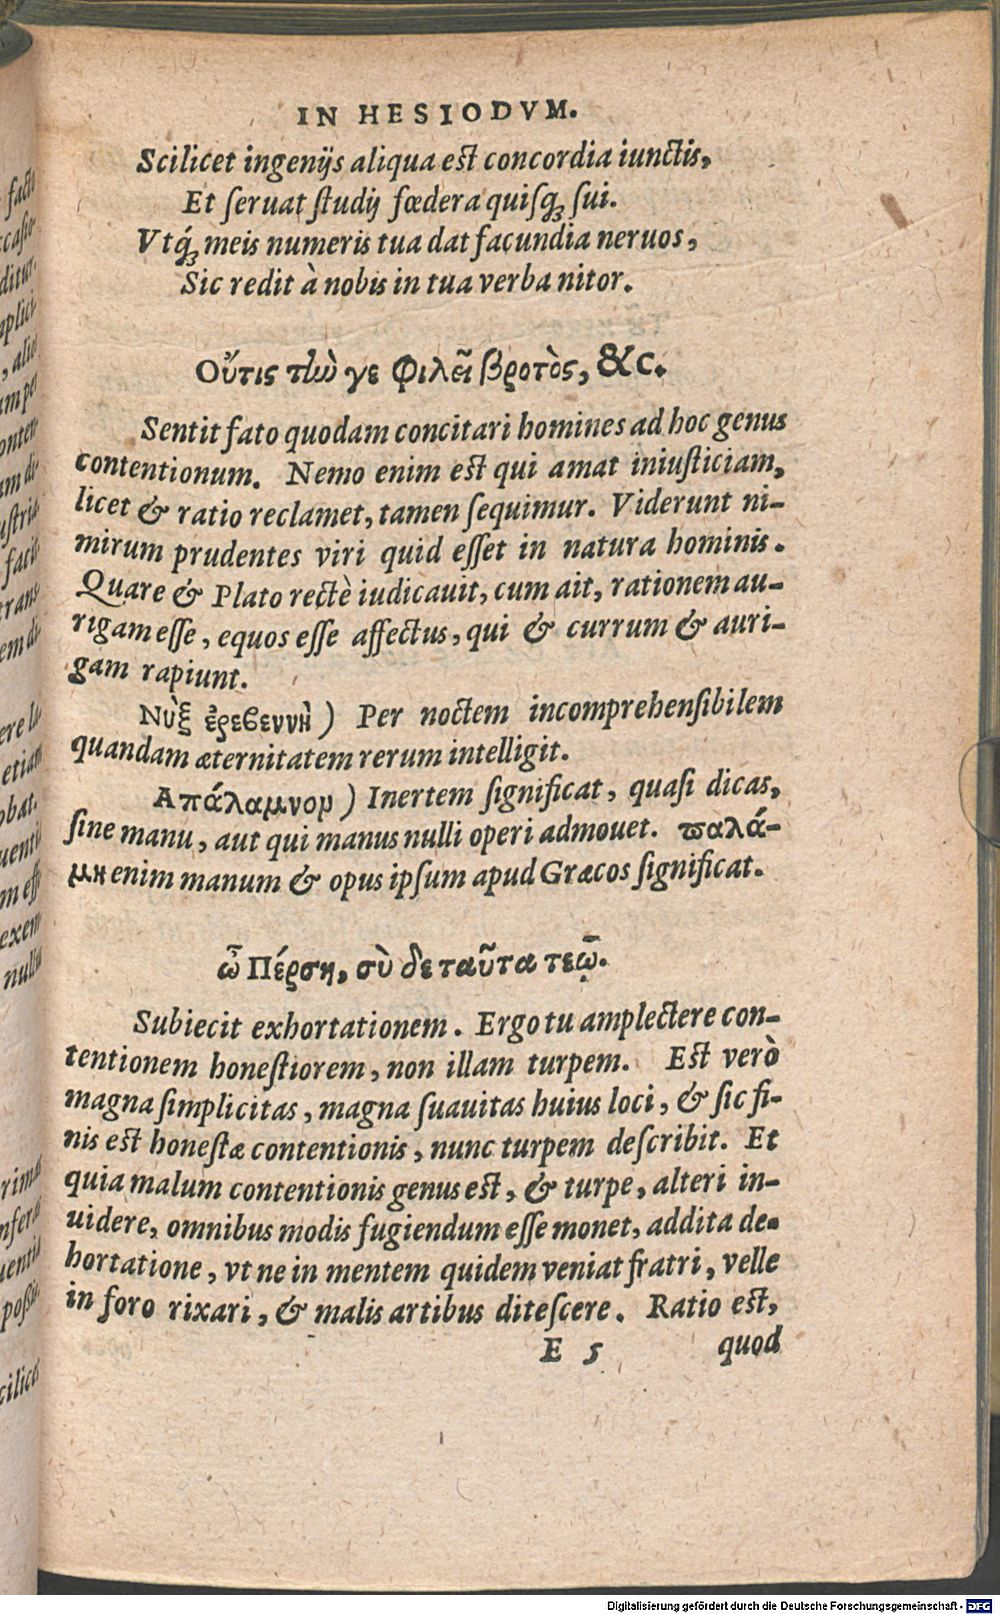 IN HESIODVM.
Scilicet ingenijs aliqua est concordia iunctis,
Et seruat studij fœdera quisq; sui.
Vtq́; meis numeris tua dat facundia neruos,
Sic redit à nobis in tua verba nitor.
Οὔτις τὼ γε φιλεῖ βροτὸς, &c.
Sentit fato quodam concitari homines ad hoc genus
contentionum. Nemo enim est qui amat iniusticiam,
licet & ratio reclamet, tamen sequimur. Viderunt ni-
mirum prudentes viri quid esset in natura hominis.
Quare & Plato rectè iudicauit, cum ait, rationem au-
rigam esse, equos esse affectus, qui & currum & auri-
gam rapiunt.
Νὺξ ἐρεβεννὴ) Per noctem incomprehensibilem
quandam æternitatem rerum intelligit.
Απάλαμνον) Inertem significat, quasi dicas,
sine manu, aut qui manus nulli operi admouet. παλά-
μη enim manum & opus ipsum apud Græcos significat.
ὦ Πέρση, σὺ δε ταῦτα τεῷ.
Subiecit exhortationem. Ergo tu amplectere con-
tentionem honestiorem, non illam turpem. Est verò
magna simplicitas, magna suauitas huius loci, & sic fi-
nis est honestæ contentionis, nunc turpem describit. Et
quia malum contentionis genus est, & turpe, alteri in-
uidere, omnibus modis fugiendum esse monet, addita de-
hortatione, vt ne in mentem quidem veniat fratri, velle
in foro rixari, & malis artibus ditescere. Ratio est,
E 5 quod
Digitalisierung gefördert durch die Deutsche Forschungsgemeinschaft - DFG